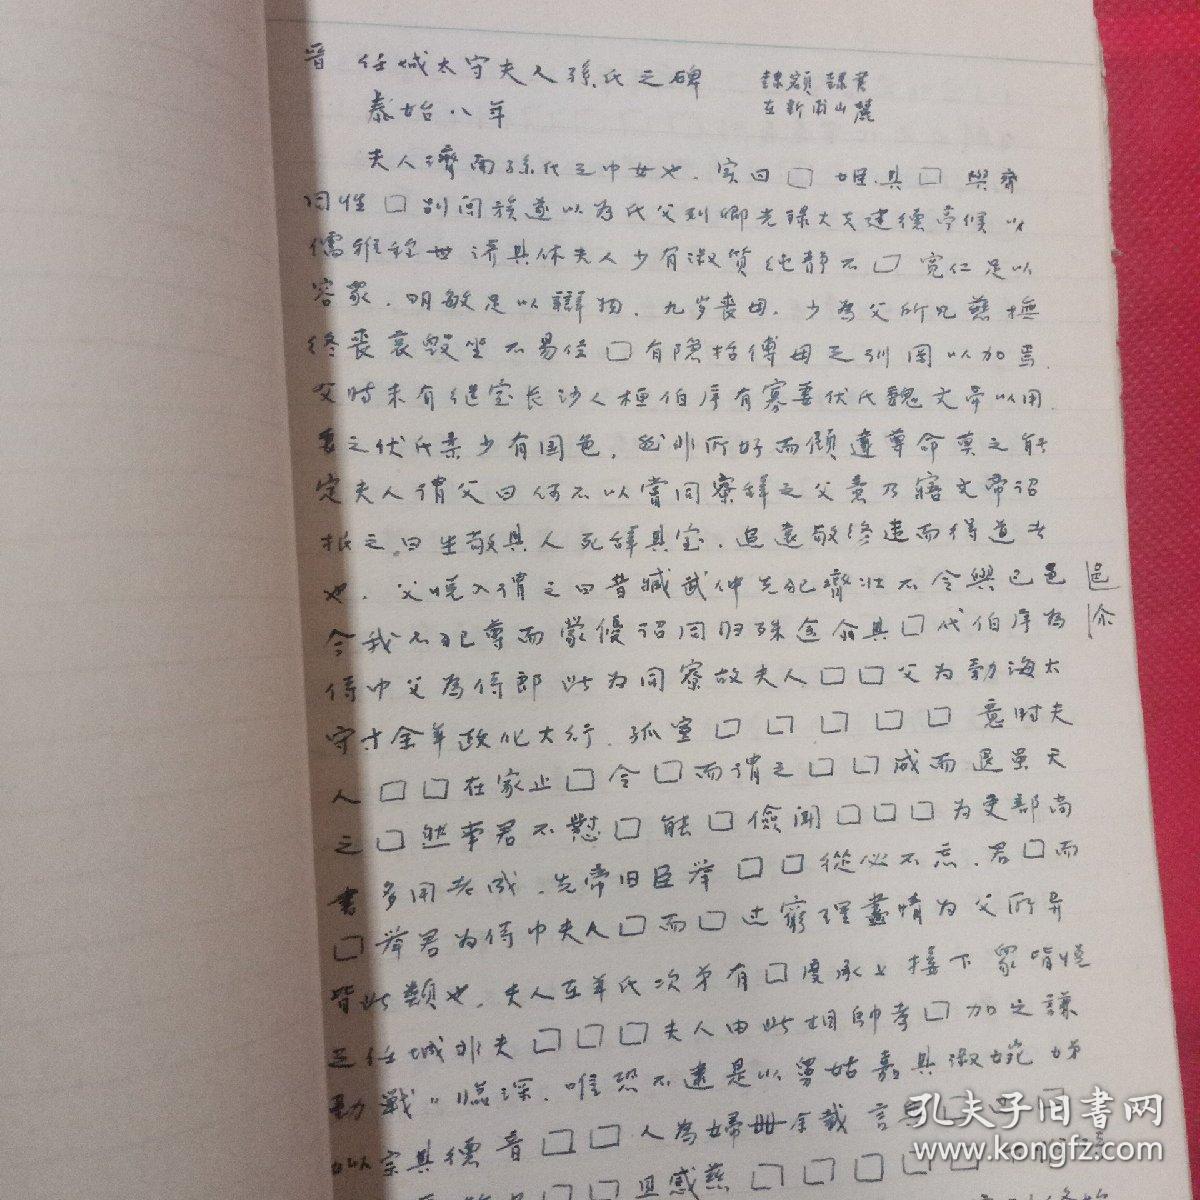 晋 任城太守夫人孫氏之碑 隸額 隸書
泰始八年 在新甫山麓
夫人濟南孫氏之中女也．実曰□姬其□與齊
同姓□別同族遂以為氏父列卿光祿大夫建德亭候以
儒雅称世济其休夫人少有淑質纯静不□寬仁足以
容眾．明敏足以辯物．九岁喪母．少為父所見慈撫
终喪哀毀坐不易位□有隐括傅母之训閨以加焉．
父時未有继室长沙人桓伯序有寡妻伏氏魏文帝以用
妻之伏氏柔少有国色．然非所好而顧違尊命莫之能
定夫人谓父曰何不以嘗同寮辞之父意乃寤文帝诏
报之．曰生敬其人死辞其室．追遠敬终違而得道者
也．父喚入谓之曰昔臧武仲先犯齊壮不令與己邑 邑
令我不犯尊而蒙優诏同归殊途俞其□代伯序為
侍中父為侍郎此为同寮故夫人□□父为勃海太
守十余年政化大行．孤室□□□□□意时夫
人□□在家止□令□而谓之□□咸而退虽天
之□然率君不懟□能□儉闻□□□为吏部尚
書多用老成．先帝旧臣举□□從必不忘．君□而
□举君为侍中夫人□而□过窮理盡情为父所异
皆此類也．夫人在羊氏次弟有□度承上接下眾皆怪
三任城非夫□□□夫人由此相帥孝□加之謙
勤戰〃臨深．唯恐不逮是以舅姑嘉其淑婉
如以宗其德音□□人為婦卌余載言
且感慈□□□□□
孔夫子旧书网
www.kongfz.com